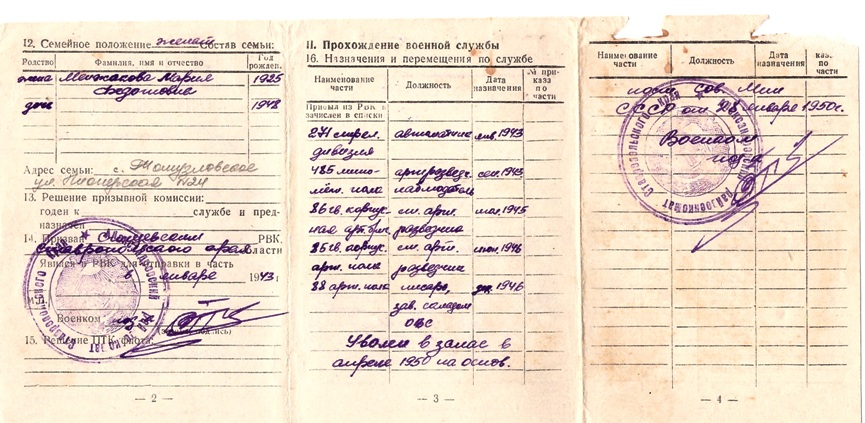 12. Семейное положение женат Состав семьи:
Родство
Фамилия, имя и отчество
Год рожден.
жена Мария 1925
Федотовна
дочь 1948
Адрес семьи: с.
13. Решение призывной комиссии:
годен к службе и пред-
назначен
14. Призван РВК,
Ставропольского края области
Явился в РВК для отправки в часть
января 1943 г.
Военком
15. Решение
— 2 —
II. Прохождение военной службы
16. Назначения и перемещения по службе
Наименование части
Должность
Дата назначения
№ приказа по части
Призыв из РВК и зачислен в списки
271 стрел. автоматчик янв. 1943
дивизия
485 мино- артразведч. сен. 1943
мет. полк наблюдатель
86 гв. корпус- ст. арт. 1945
ная арт. бриг. разведчик
86 гв. корпус. ст. арт. 1946
арт. полк разведчик
88 арт. полк писарь, 1946
зав. складом
ОВС
Уволен в запас в
апреле 1950 на основ.
— 3 —
Наименование части
Должность
Дата назначения
каз. по части
Сов. Мин
СССР от января 1950г.
Военком
— 4 —